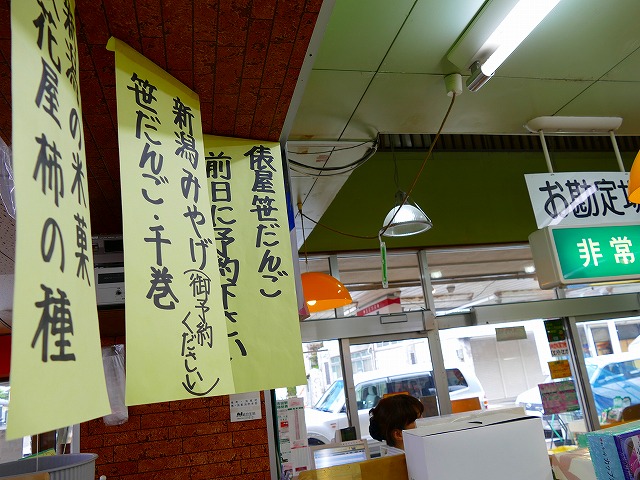 新潟の米菓
花屋 柿の種
新潟みやげ(御予約
ください)
笹だんご・千巻
俵屋笹だんご
前日に予約下さい
お勘定場
非常